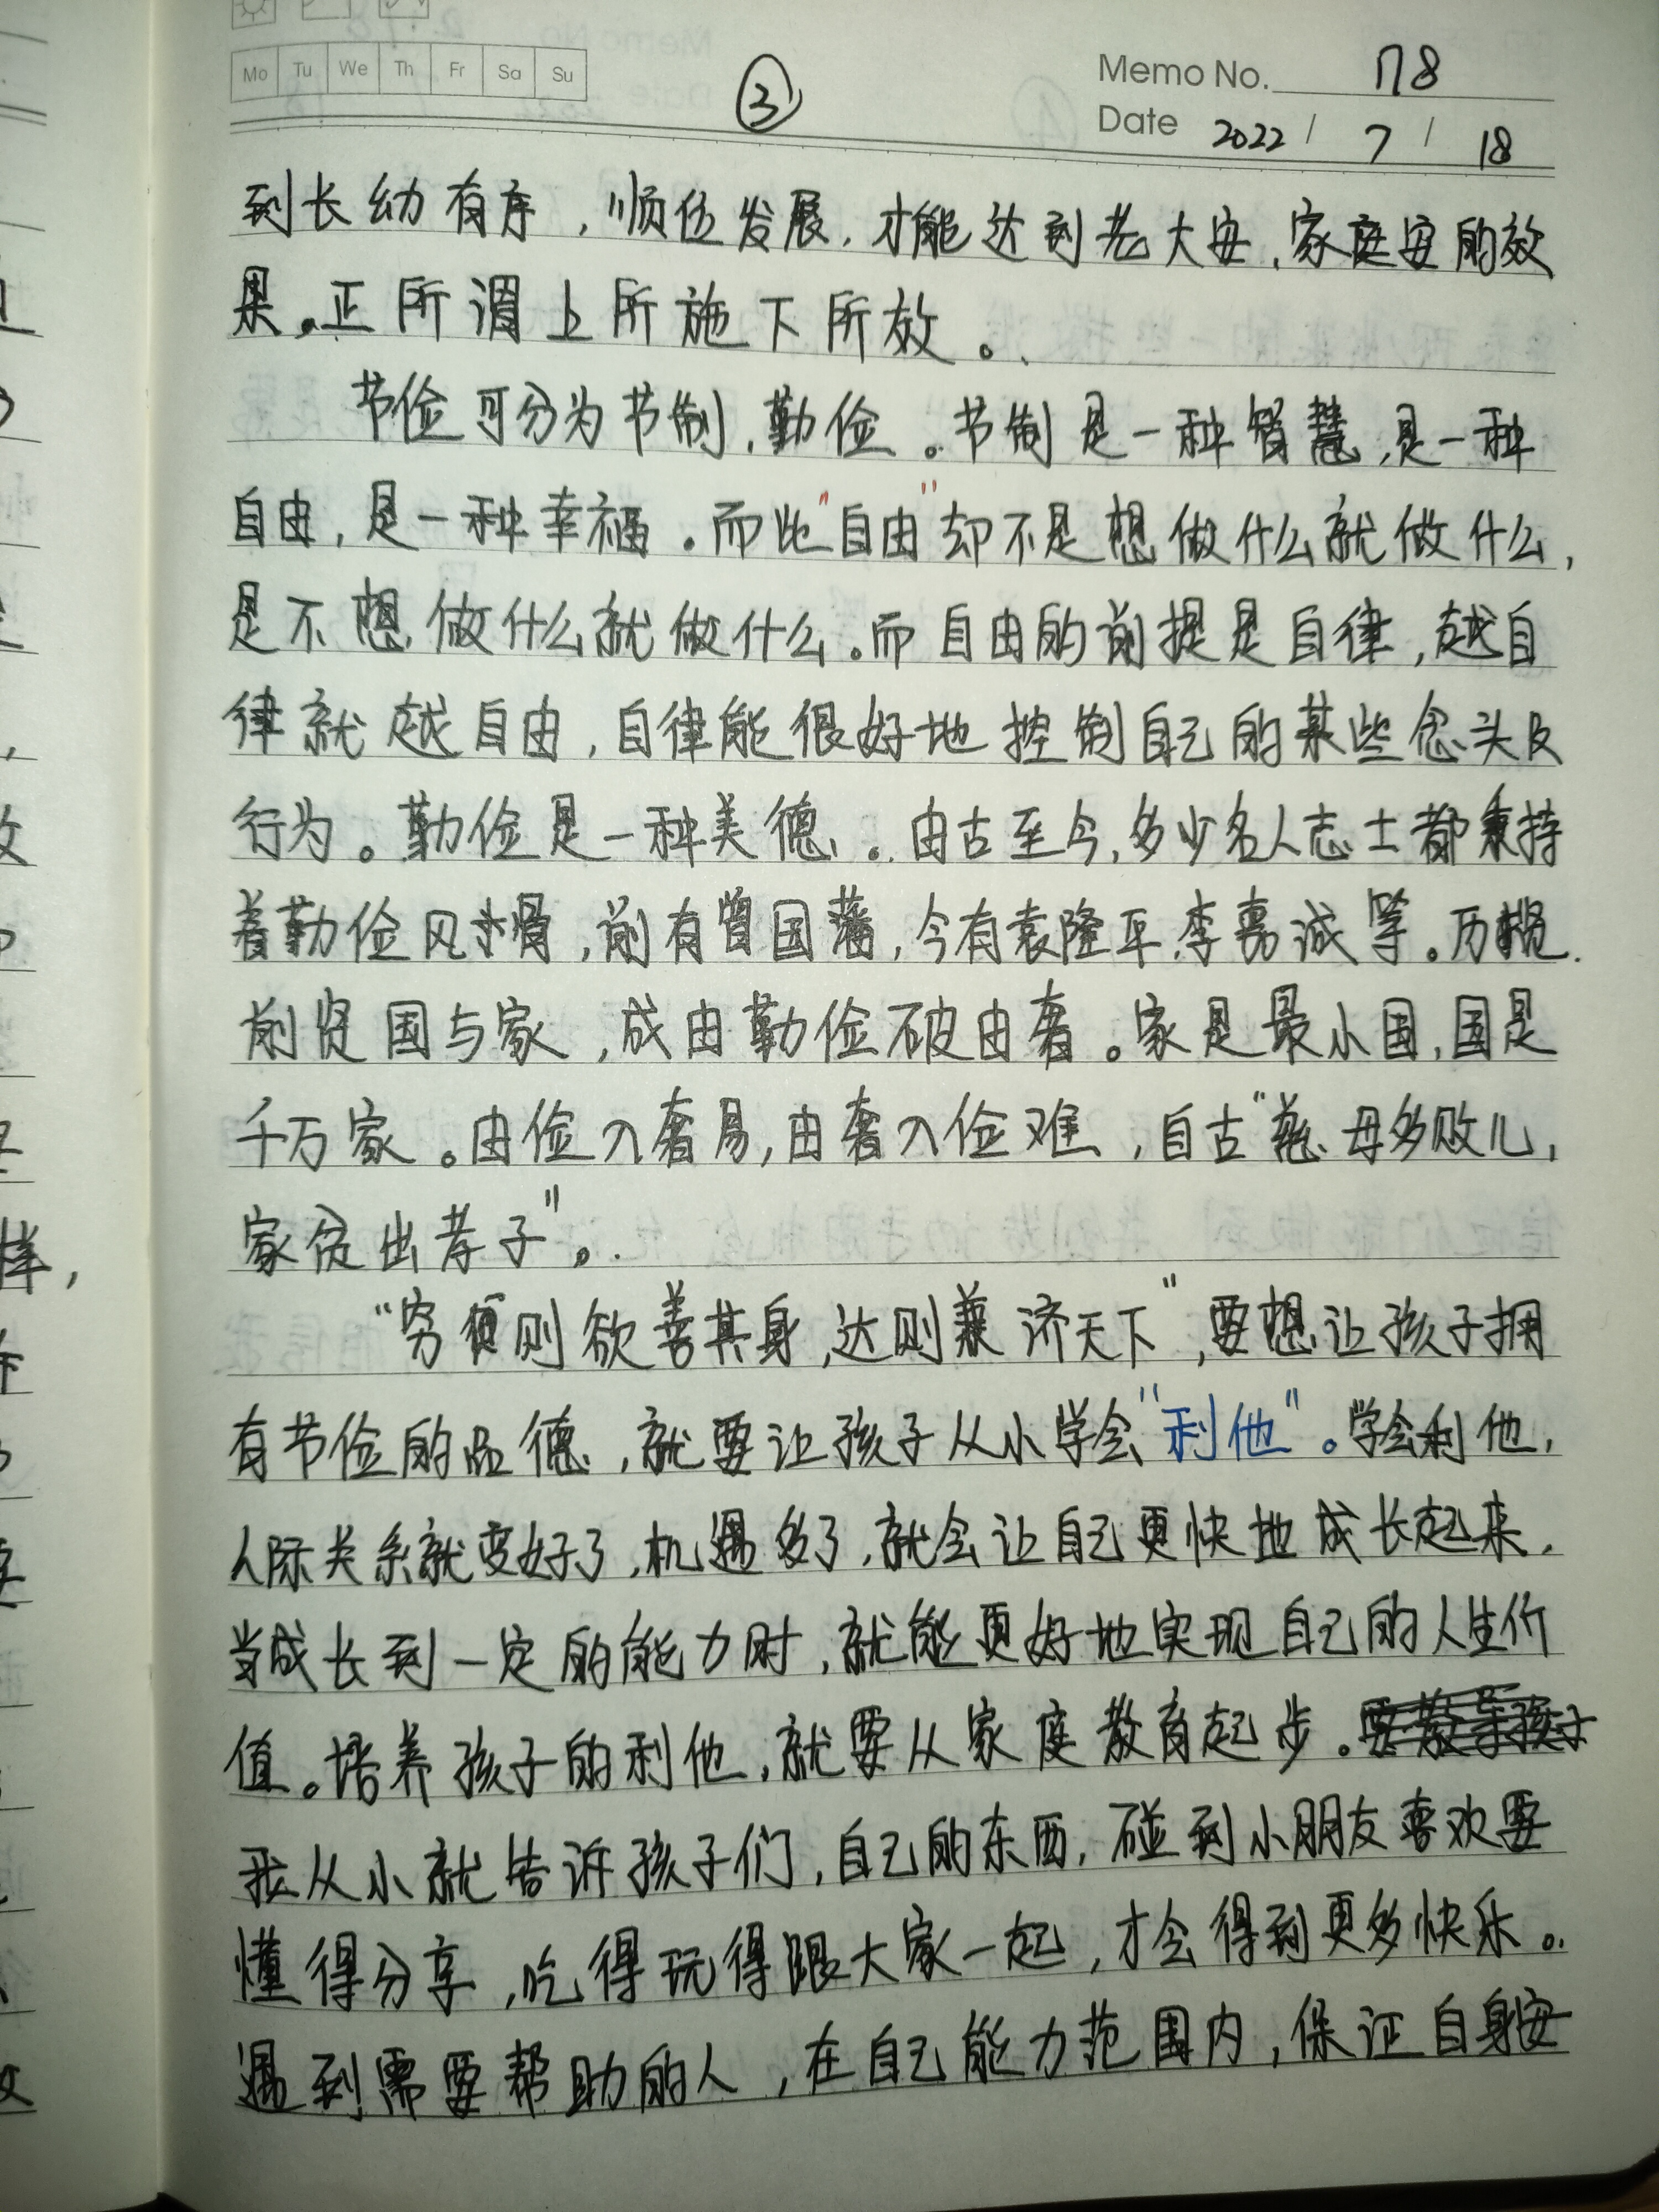 Mo Tu We Th Fr Sa Su
③
Memo No. 178
Date 2022 / 7 / 18
到长幼有序，顺位发展，才能达到老大安、家庭安的效
果。正所谓上所施下所效。
节俭可分为节制、勤俭。节制是一种智慧，是一种
自由，是一种幸福。而此"自由"却不是想做什么就做什么，
是不想做什么就做什么。而自由的前提是自律，越自
律就越自由，自律能很好地控制自己的某些念头及
行为。勤俭是一种美德。由古至今，多少名人志士都秉持
着勤俭风骨，前有曾国藩，今有袁隆平、李嘉诚等。历览
前贤国与家，成由勤俭破由奢。家是最小国，国是
千万家。由俭入奢易，由奢入俭难，自古"慈母多败儿，
家贫出孝子"。
"穷则欲善其身，达则兼济天下"，要想让孩子拥
有节俭的品德，就要让孩子从小学会"利他"。学会利他，
人际关系就变好了，机遇多了，就会让自己更快地成长起来，
当成长到一定的能力时，就能更好地实现自己的人生价
值。培养孩子的利他，就要从家庭教育起步。
我从小就告诉孩子们，自己的东西，碰到小朋友喜欢要
懂得分享，吃得玩得跟大家一起，才会得到更多快乐。
遇到需要帮助的人，在自己能力范围内，保证自身安